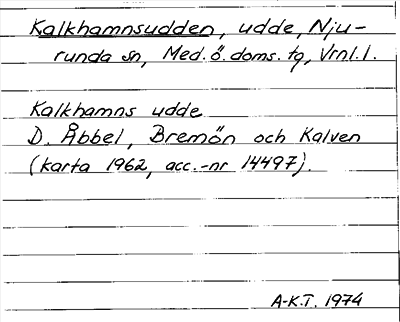 Kalkhamnsudden, udde, Nju-
runda sn, Med. ö. doms. tg, Vrnl. l.
Kalkhamns udde
D. Åbbel, Bremön och Kalven
(karta 1962, acc.-nr 14497).
A-K.T. 1974